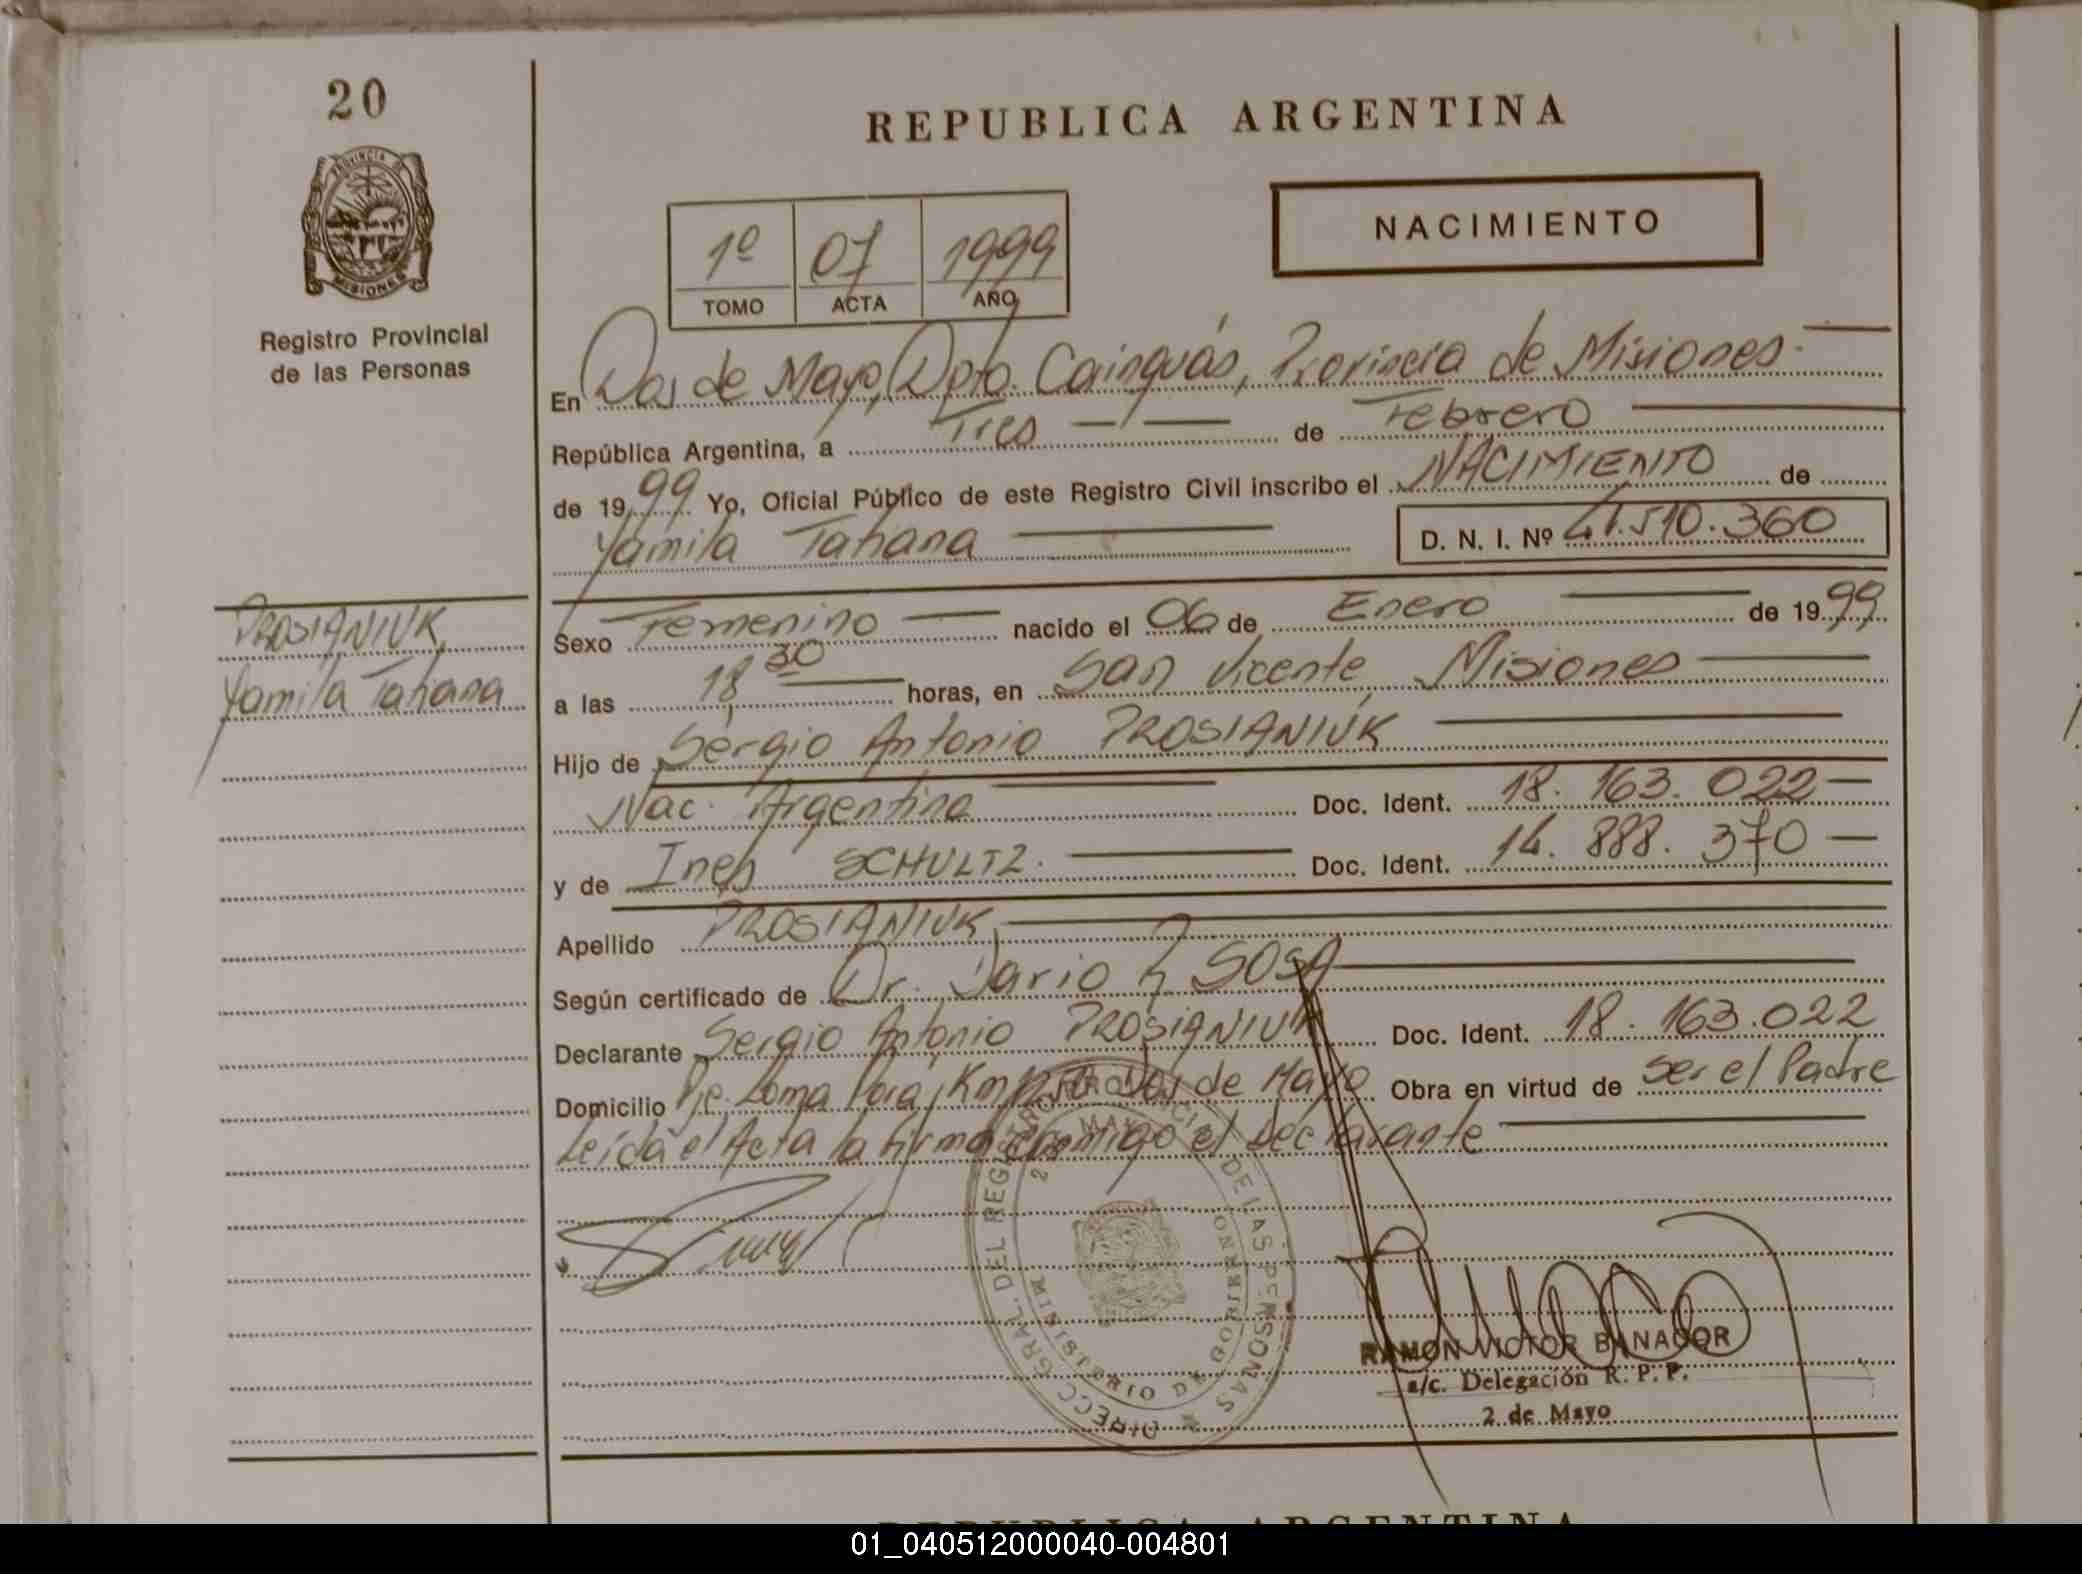 20
PROVINCIA DE
MISIONES
Registro Provincial
de las Personas
REPUBLICA ARGENTINA
NACIMIENTO
1º 07 1999
TOMO ACTA AÑO
En Dos de Mayo, Dpto. Cainguás, Provincia de Misiones.
República Argentina, a Tres de Febrero
de 1999 Yo, Oficial Público de este Registro Civil inscribo el NACIMIENTO de
Yamila Tatiana D. N. I. Nº 41.510.360
PROSIANIUK
Yamila Tatiana
Sexo Femenino nacido el 06 de Enero de 1999
a las 18,30 horas, en San Vicente, Misiones
Hijo de Sergio Antonio PROSIANIUK
Nac. Argentina Doc. Ident. 18.163.022
y de Ines SCHULTZ. Doc. Ident. 14.888.370
Apellido PROSIANIUK
Según certificado de Dr. Dario R SOSA
Declarante Sergio Antonio PROSIANIUK Doc. Ident. 18.163.022
Domicilio Pje. Loma Porá, Km Dos de Mayo Obra en virtud de ser el Padre
Leída el Acta la firma conmigo el Declarante
DIRECC GRAL. DEL REGISTRO PROVINCIAL DE LAS PERSONAS
2 MAYO
MINISTERIO DE GOBIERNO
RAMON VICTOR BANAGOR
a/c. Delegación R. P. P.
2 de Mayo
REPUBLICA ARGENTINA
01_040512000040-004801